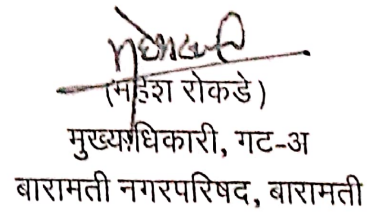 (महेश रोकडे)
मुख्याधिकारी, गट-अ
बारामती नगरपरिषद, बारामती